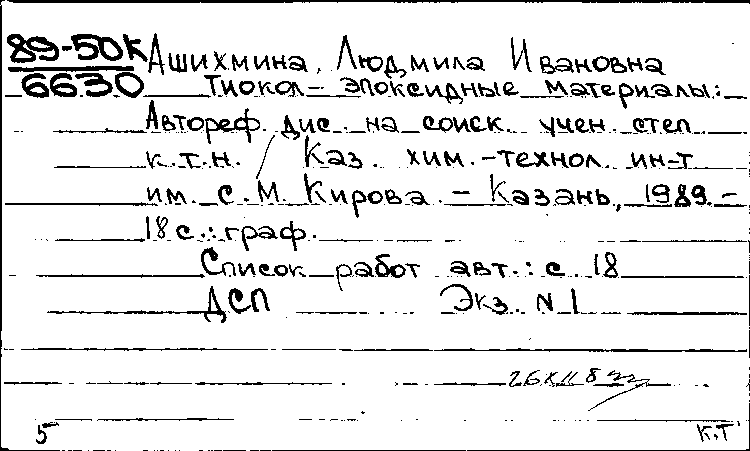 89-50К
6630
Ашихмина, Людмила Ивановна
Тиокол-эпоксидные материалы:
Автореф. дис. на соиск. учен. степ.
к.т.н. / Каз. хим.-технол. ин-т
им. С.М. Кирова. - Казань, 1989.-
18 с.: граф.
Список работ авт.: с. 18
ДСП Экз. N 1
5 К.Т